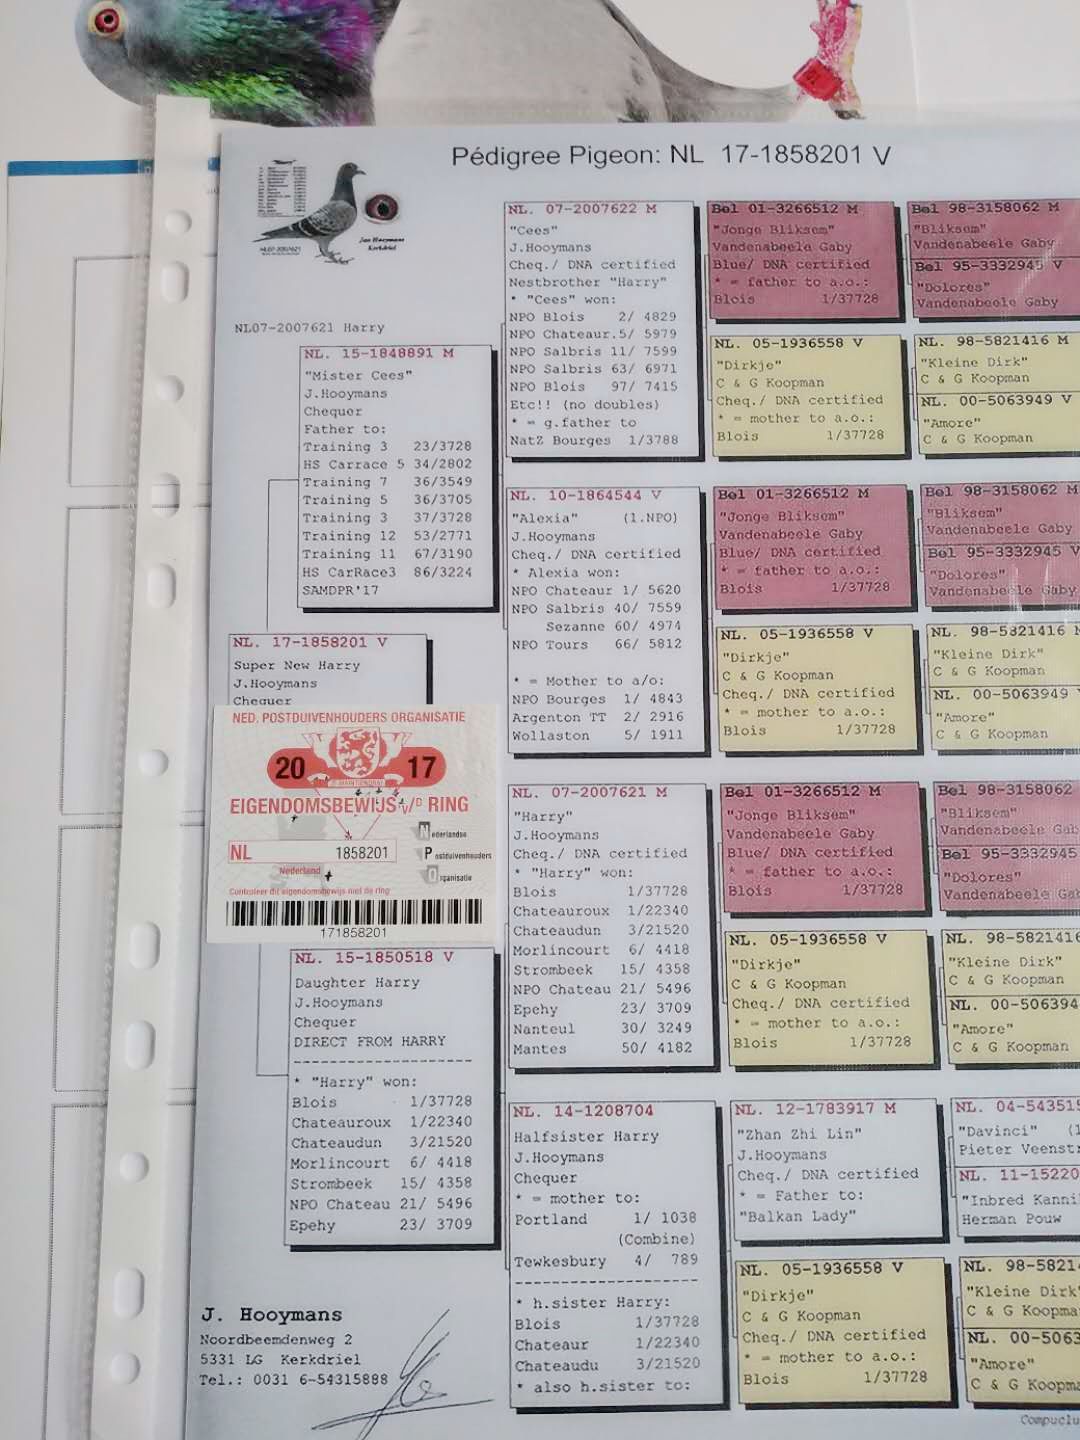 Pédigree Pigeon: NL 17-1858201 V
Jan Hooymans
Kerkdriel
NL07-2007621
NL07-2007621 Harry
NL. 15-1848891 M
"Mister Cees"
J.Hooymans
Chequer
Father to:
Training 3 23/3728
HS Carrace 5 34/2802
Training 7 36/3549
Training 5 36/3705
Training 3 37/3728
Training 12 53/2771
Training 11 67/3190
HS CarRace3 86/3224
SAMDPR'17
NL. 17-1858201 V
Super New Harry
J.Hooymans
Chequer
NED. POSTDUIVENHOUDERS ORGANISATIE
20 17
EIGENDOMSBEWIJS V/D RING
NL 1858201
Nederland
Nederlandse
Postduivenhouders
Organisatie
Controleer dit eigendomsbewijs met de ring
171858201
NL. 15-1850518 V
Daughter Harry
J.Hooymans
Chequer
DIRECT FROM HARRY
--------------------
* "Harry" won:
Blois 1/37728
Chateauroux 1/22340
Chateaudun 3/21520
Morlincourt 6/ 4418
Strombeek 15/ 4358
NPO Chateau 21/ 5496
Epehy 23/ 3709
J. Hooymans
Noordbeemdenweg 2
5331 LG Kerkdriel
Tel.: 0031 6-54315888
NL. 07-2007622 M
"Cees"
J.Hooymans
Cheq./ DNA certified
Nestbrother "Harry"
* "Cees" won:
NPO Blois 2/ 4829
NPO Chateaur.5/ 5979
NPO Salbris 11/ 7599
NPO Salbris 63/ 6971
NPO Blois 97/ 7415
Etc!! (no doubles)
* = g.father to
NatZ Bourges 1/3788
NL. 10-1864544 V
"Alexia" (1.NPO)
J.Hooymans
Cheq./ DNA certified
* Alexia won:
NPO Chateaur 1/ 5620
NPO Salbris 40/ 7559
Sezanne 60/ 4974
NPO Tours 66/ 5812
* = Mother to a/o:
NPO Bourges 1/ 4843
Argenton TT 2/ 2916
Wollaston 5/ 1911
NL. 07-2007621 M
"Harry"
J.Hooymans
Cheq./ DNA certified
* "Harry" won:
Blois 1/37728
Chateauroux 1/22340
Chateaudun 3/21520
Morlincourt 6/ 4418
Strombeek 15/ 4358
NPO Chateau 21/ 5496
Epehy 23/ 3709
Nanteul 30/ 3249
Mantes 50/ 4182
NL. 14-1208704
Halfsister Harry
J.Hooymans
Chequer
* = mother to:
Portland 1/ 1038
(Combine)
Tewkesbury 4/ 789
--------------------
* h.sister Harry:
Blois 1/37728
Chateaur 1/22340
Chateaudu 3/21520
* also h.sister to:
Bel 01-3266512 M
"Jonge Bliksem"
Vandenabeele Gaby
Blue/ DNA certified
* = father to a.o.:
Blois 1/37728
NL. 05-1936558 V
"Dirkje"
C & G Koopman
Cheq./ DNA certified
* = mother to a.o.:
Blois 1/37728
Bel 01-3266512 M
"Jonge Bliksem"
Vandenabeele Gaby
Blue/ DNA certified
* = father to a.o.:
Blois 1/37728
NL. 05-1936558 V
"Dirkje"
C & G Koopman
Cheq./ DNA certified
* = mother to a.o.:
Blois 1/37728
Bel 01-3266512 M
"Jonge Bliksem"
Vandenabeele Gaby
Blue/ DNA certified
* = father to a.o.:
Blois 1/37728
NL. 05-1936558 V
"Dirkje"
C & G Koopman
Cheq./ DNA certified
* = mother to a.o.:
Blois 1/37728
NL. 12-1783917 M
"Zhan Zhi Lin"
J.Hooymans
Cheq./ DNA certified
* = Father to:
"Balkan Lady"
NL. 05-1936558 V
"Dirkje"
C & G Koopman
Cheq./ DNA certified
* = mother to a.o.:
Blois 1/37728
Bel 98-3158062 M
"Bliksem"
Vandenabeele Gaby
Bel 95-3332945 V
"Dolores"
Vandenabeele Gaby
NL. 98-5821416 M
"Kleine Dirk"
C & G Koopman
NL. 00-5063949 V
"Amore"
C & G Koopman
Bel 98-3158062 M
"Bliksem"
Vandenabeele Gaby
Bel 95-3332945 V
"Dolores"
Vandenabeele Gaby
NL. 98-5821416 M
"Kleine Dirk"
C & G Koopman
NL. 00-5063949 V
"Amore"
C & G Koopman
Bel 98-3158062
"Bliksem"
Vandenabeele Gab
Bel 95-3332945
"Dolores"
Vandenabeele Gab
NL. 98-5821416
"Kleine Dirk"
C & G Koopman
NL. 00-506394
"Amore"
C & G Koopman
NL. 04-543515
"Davinci" (1
Pieter Veenstr
NL. 11-15220
"Inbred Kanni
Herman Pouw
NL. 98-5821
"Kleine Dirk
C & G Koopma
NL. 00-5063
"Amore"
C & G Koopm
Compuclu